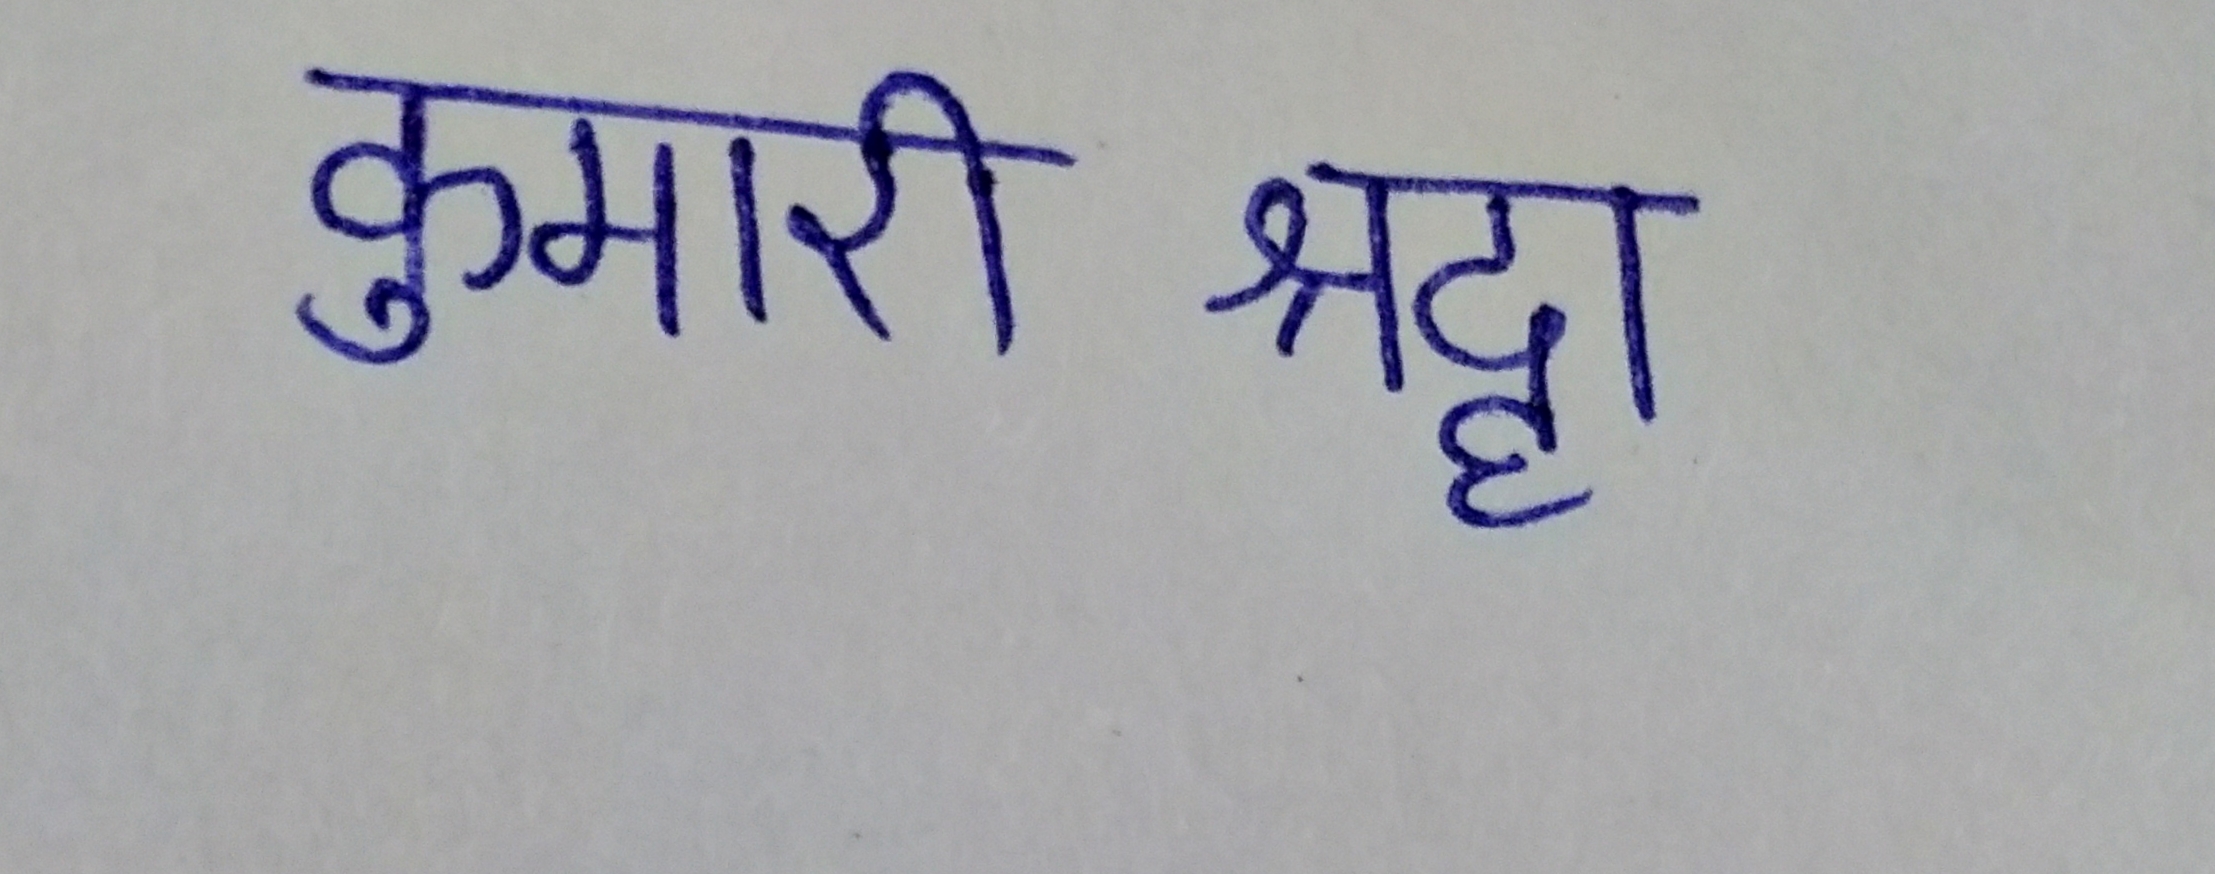 कुमारी श्रद्धा